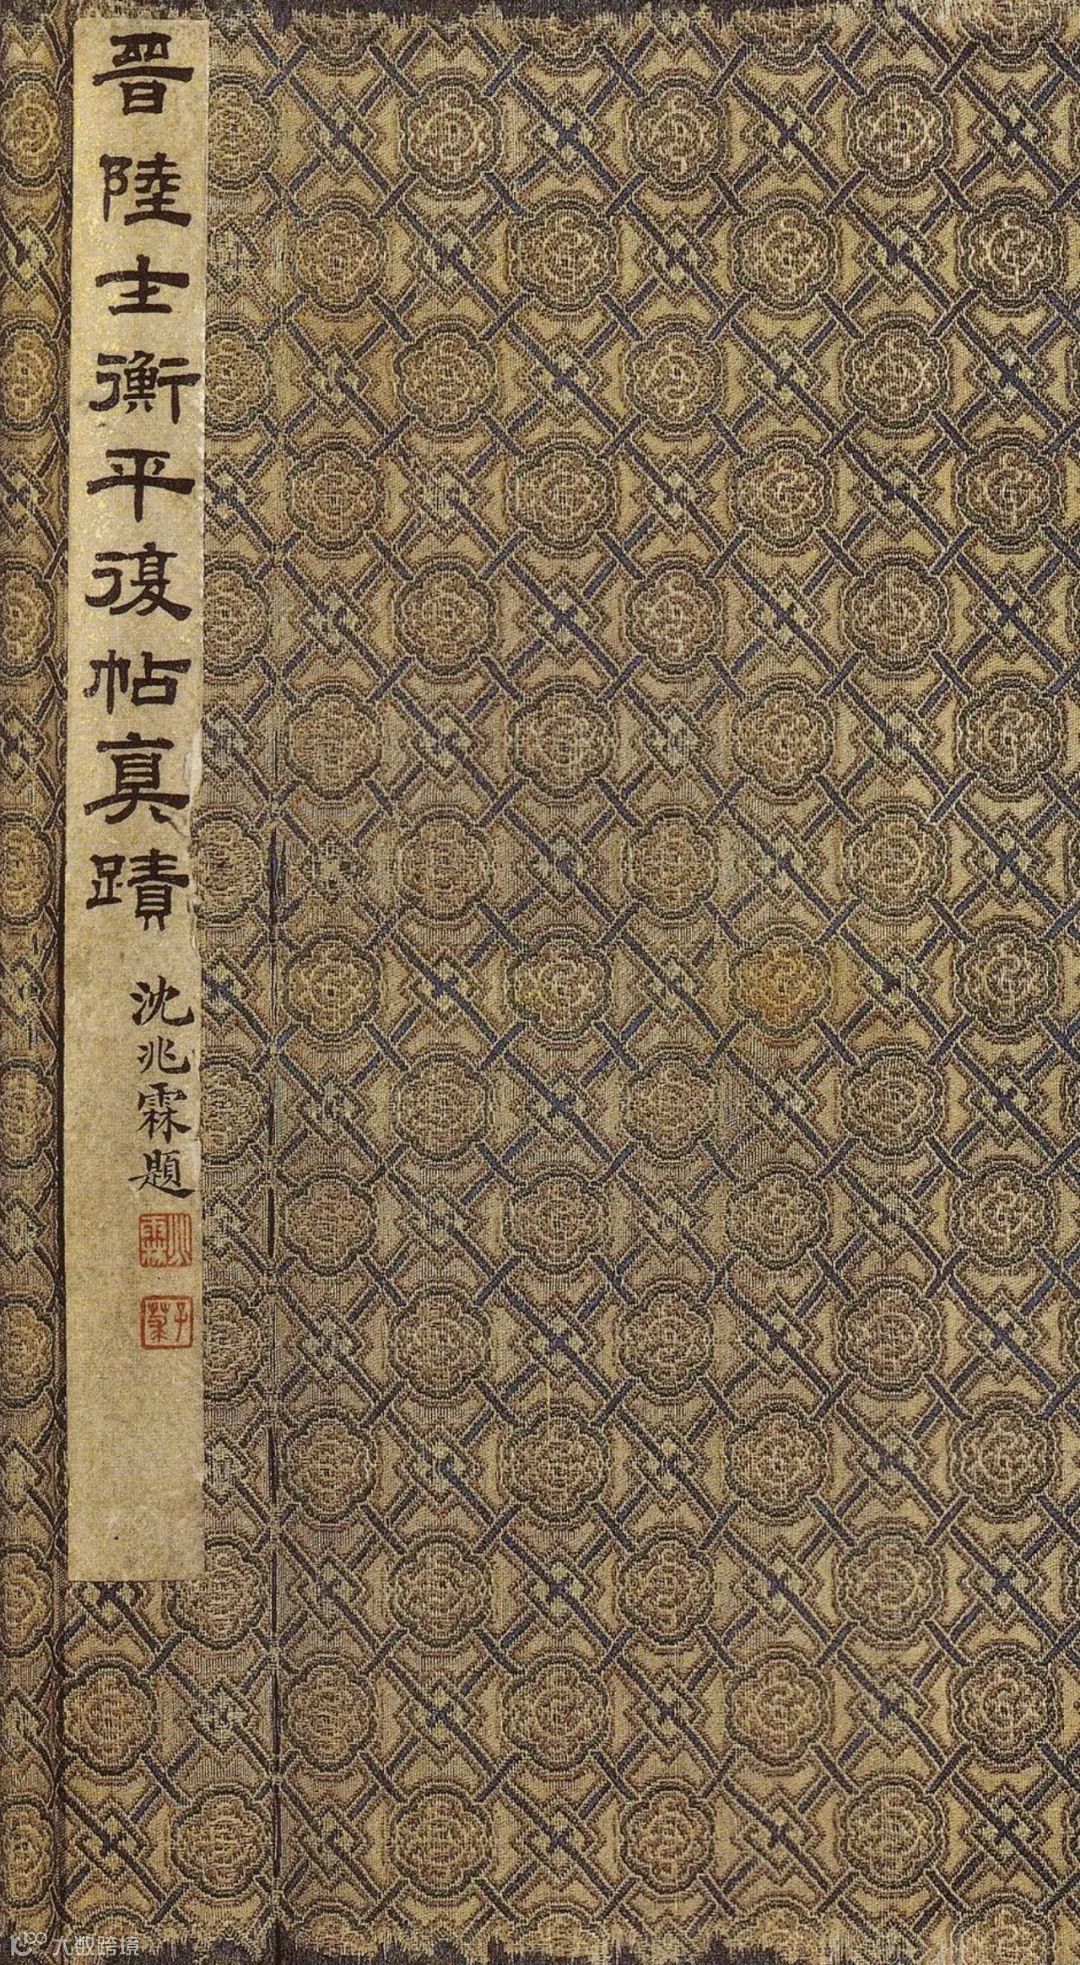 晉陸士衡平復帖真蹟
沈兆霖題
大数跨境